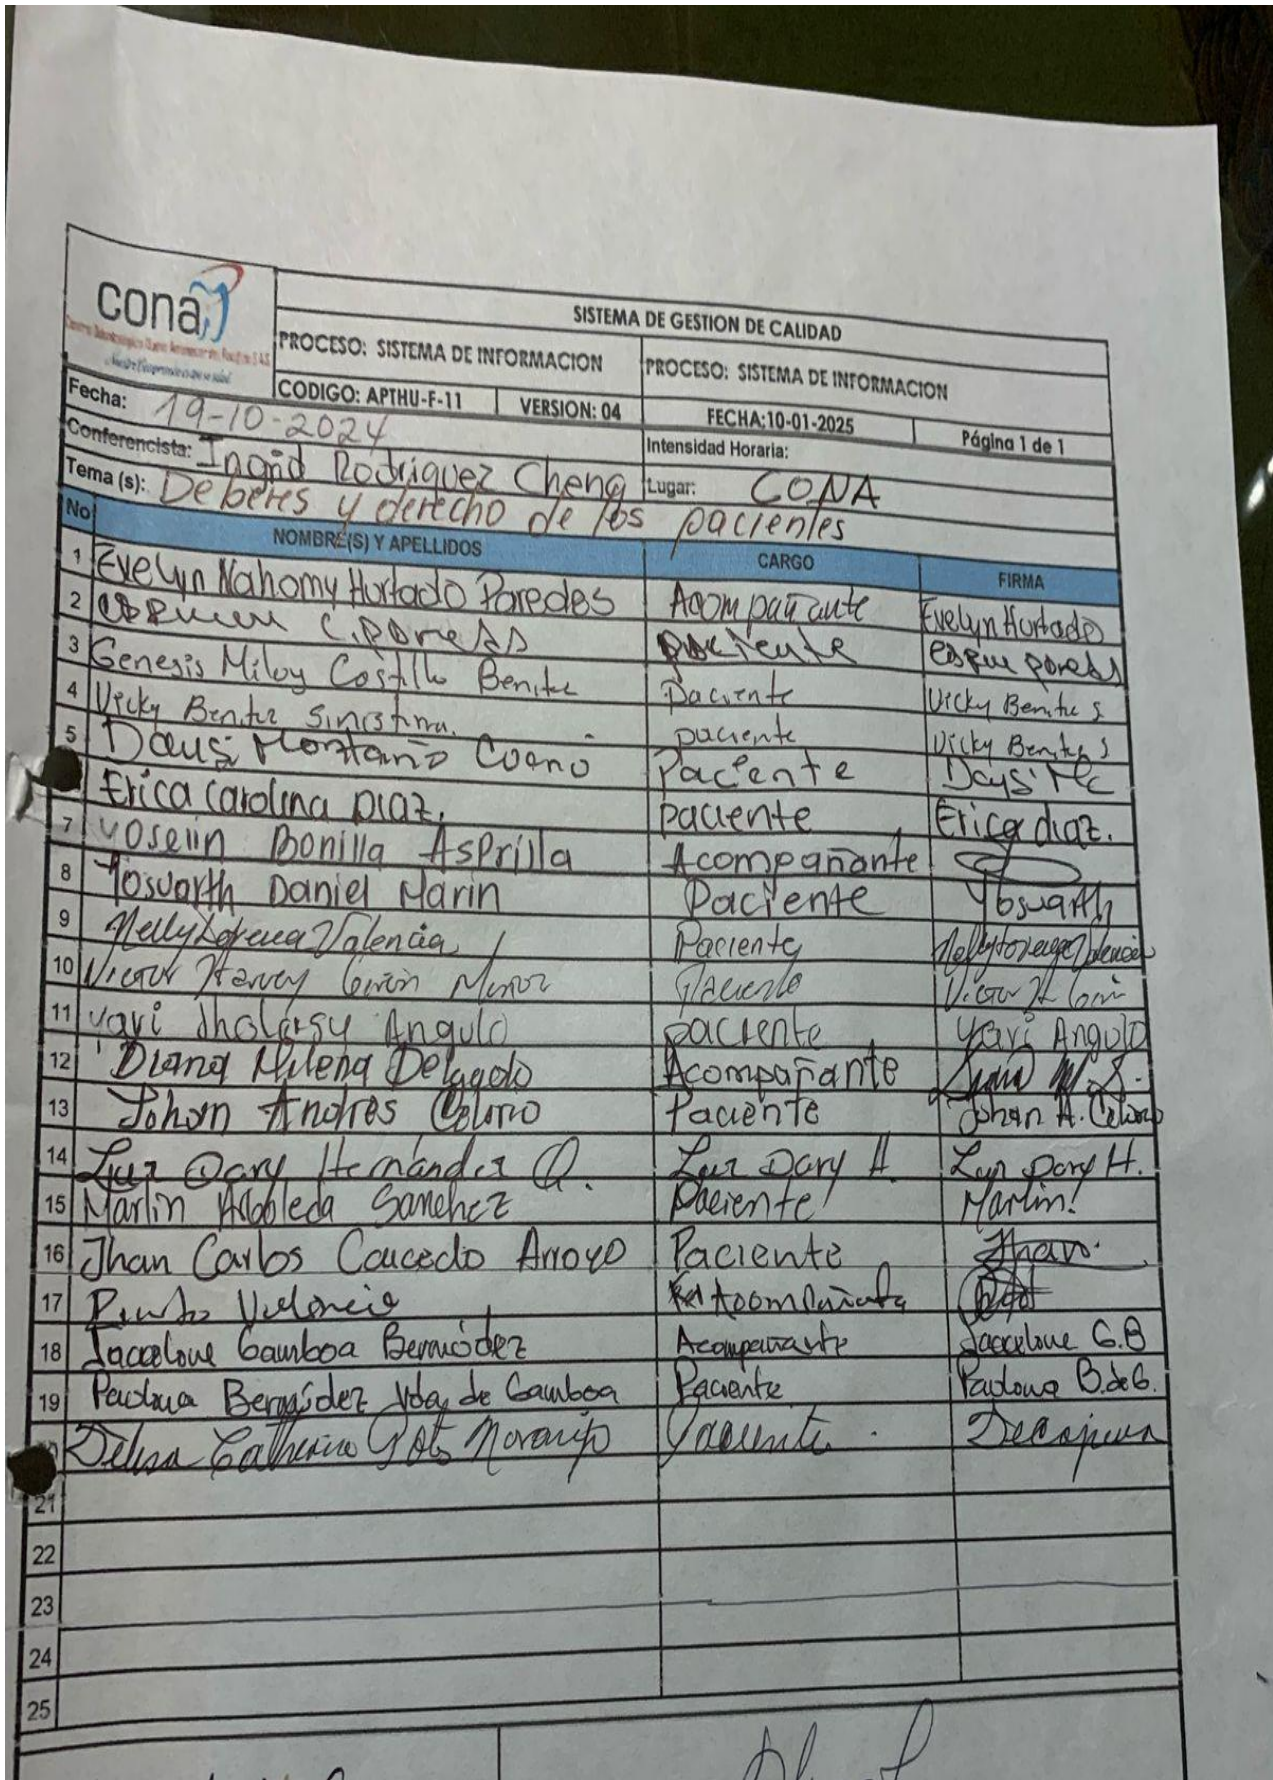 cona
SISTEMA DE GESTION DE CALIDAD
PROCESO: SISTEMA DE INFORMACION PROCESO: SISTEMA DE INFORMACION
CODIGO: APTHU-F-11 VERSION: 04 FECHA:10-01-2025 Página 1 de 1
Fecha: 19-10-2024 Intensidad Horaria:
Conferencista: Ingrid Rodriguez Cheng Lugar: CONA
Tema (s): Deberes y derecho de los pacientes
No NOMBRE(S) Y APELLIDOS CARGO FIRMA
1 Evelyn Nahomy Hurtado Paredes Acompañante Evelyn Hurtado
2 paciente
3 Genesis Miloy Castillo Benitez paciente Vicky Benitez S
4 Vicky Benitez Sinisterra. paciente Vicky Benitez S
5 Daysi Montaño Cuero Paciente Daysi Mc
Erica Carolina Diaz. paciente Erica diaz.
7 yoselin Bonilla Asprilla Acompañante
8 Yosuarth Daniel Marin Paciente Yosuarth
9 Nelly Lorena Valencia Paciente Nelly Lorena Valencia
10 Victor Harvey Muñoz Paciente Victor H
11 yari Angulo paciente yari Angulo
12 Diana Milena Delgado Acompañante
13 Johan Andres Celorio Paciente Johan A. Celorio
14 Luz Dary Hernández Q. Luz Dary H. Luz Dary H.
15 Marlin Arboleda Sanchez Paciente Marlin.
16 Jhan Carlos Caicedo Arroyo Paciente Jhan.
17 Valencia Acompañante
18 Jacceloue Gamboa Bermúdez Acompañante Jacceloue G.B
19 Paulina Bermúdez Vda de Gamboa Paciente Paulina B. de G.
Catherine Naranjo Paciente
21
22
23
24
25